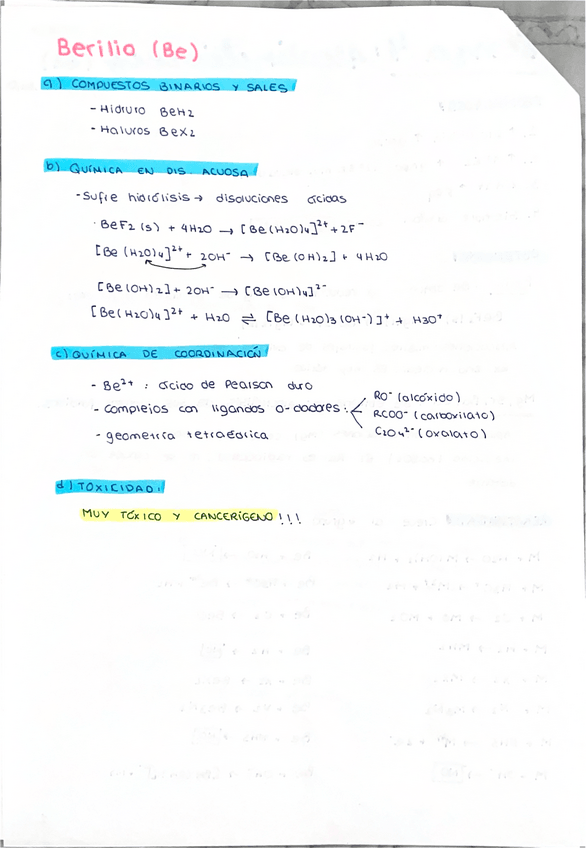 Berilio (Be)
a) COMPUESTOS BINARIOS Y SALES
- Hidruro BeH2
- Haluros BeX2
b) QUÍMICA EN DIS. ACUOSA
- Sufre hidrólisis → disoluciones ácidas
· BeF2 (s) + 4H2O → [Be(H2O)4]²⁺ + 2F⁻
[Be (H2O)4]²⁺ + 2OH⁻ → [Be(OH)2] + 4H2O
[Be(OH)2] + 2OH⁻ → [Be(OH)4]²⁻
[Be(H2O)4]²⁺ + H2O ⇌ [Be(H2O)3(OH⁻)]⁺ + H3O⁺
c) QUÍMICA DE COORDINACIÓN
- Be²⁺ : ácido de Pearson duro
- Complejos con ligandos O-dadores :
RO⁻ (alcóxido)
RCOO⁻ (carboxilato)
C2O4²⁻ (oxalato)
- geometría tetraédrica
d) TOXICIDAD:
MUY TÓXICO Y CANCERÍGENO!!!